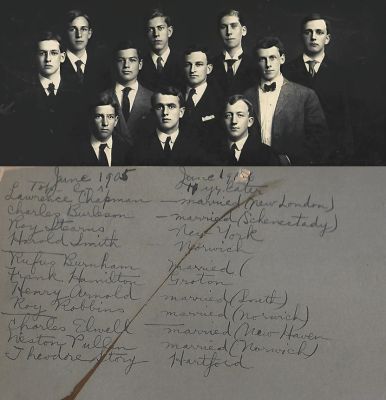 June 1905 June 19
Top Row 10 yrs. later
Lawrence Chapman — married (New London)
Charles Burleson — married (Schenectady)
Roy Stearns New York
Harold Smith Norwich
Rufus Burnham Married (
Frank Hamilton Groton
Henry Arnold married (Smith)
Roy Robbins married (Norwich)
Charles Elwell — married (New Haven
Weston Pullen married (Norwich)
Theodore Story Hartford